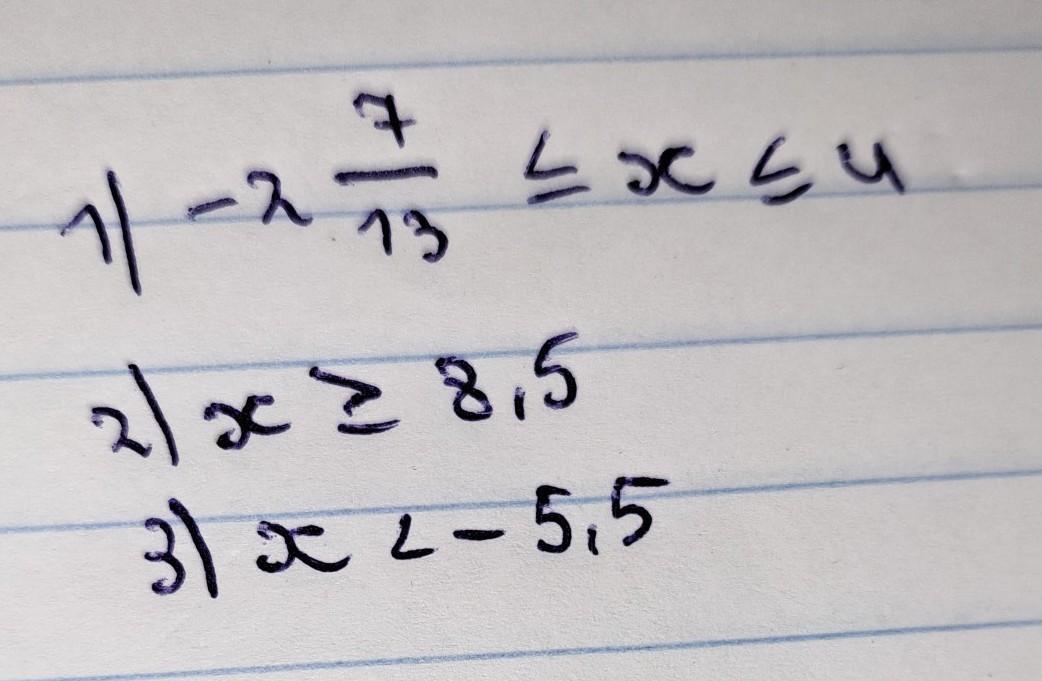 1) -2 7/13 ≤ x ≤ 4
2) x ≥ 8,5
3) x < - 5,5